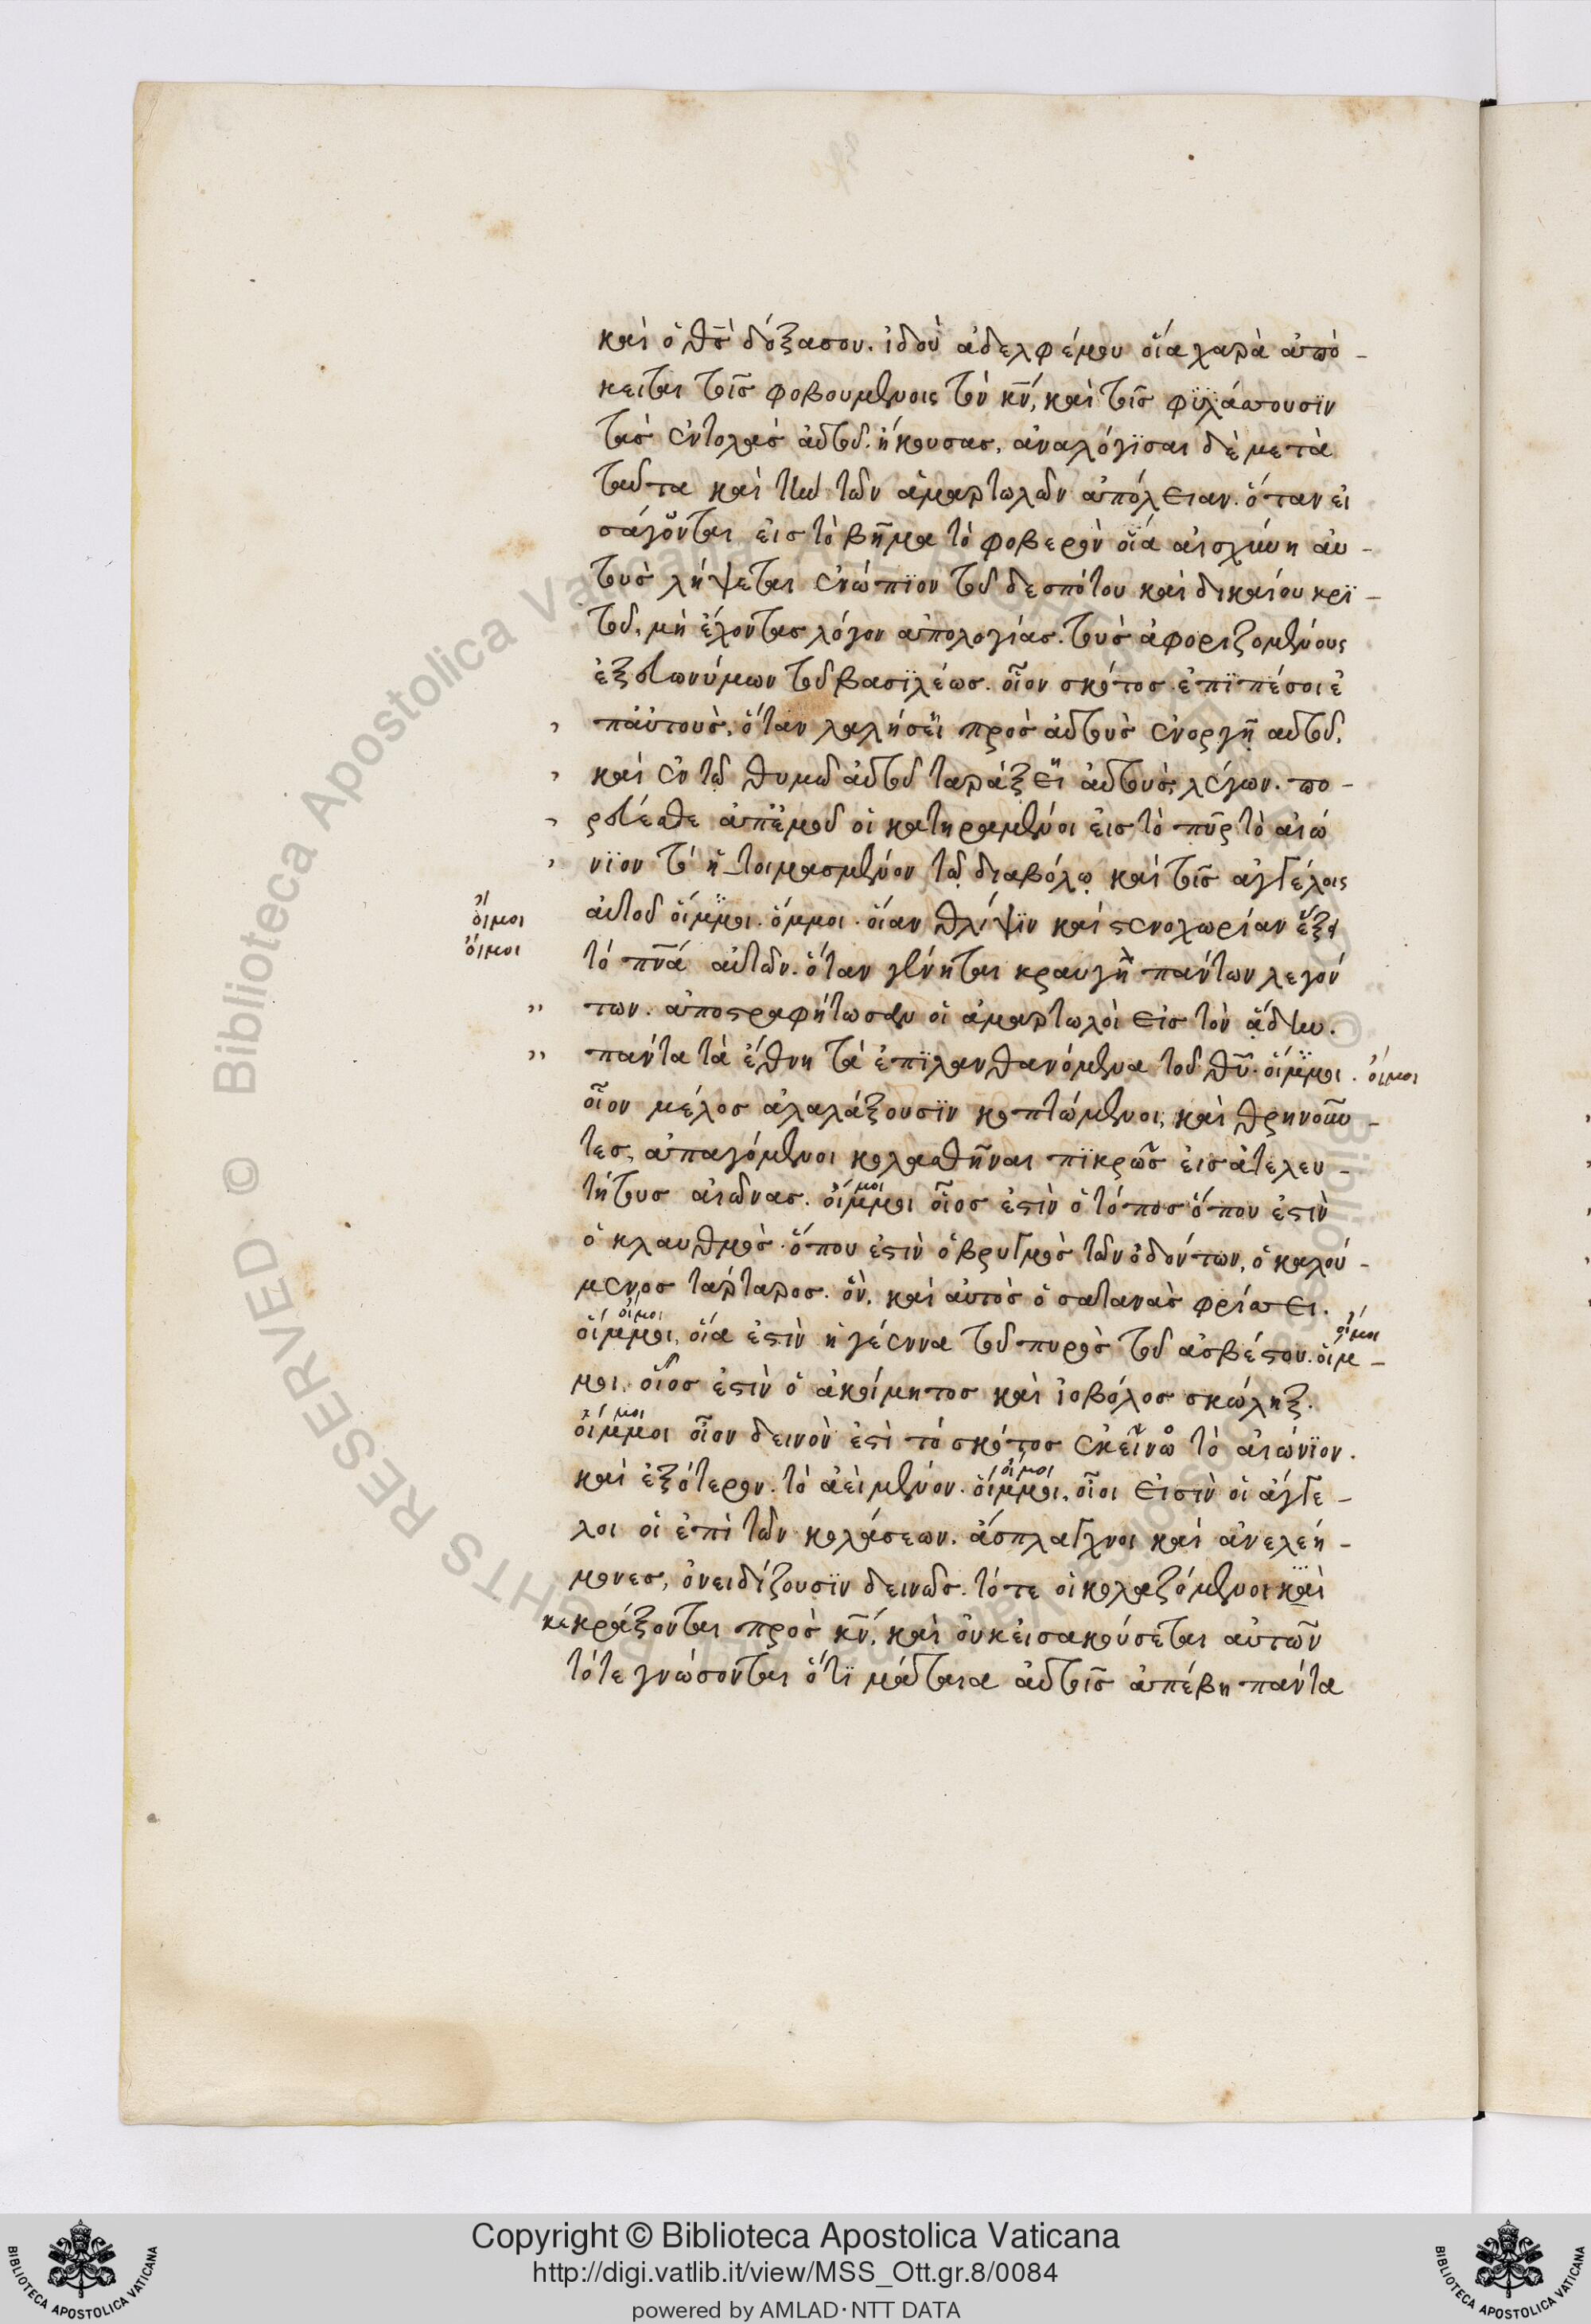 καὶ ὁ θς̄ δόξασον. ἰδοὺ ἀδελφέμου οἵα χαρὰ ἀπό-
κειται τοῖς φοβουμένοις τὸν κν̄, καὶ τοῖς φϋλάττουσϊν
τὰς ἐντολὰς αὐτοῦ. ἤκουσας, ἀναλόγϊσαι δὲ μετὰ
ταῦτα καὶ τὴν τῶν ἁμαρτωλῶν ἀπόλειαν. ὅταν εἰ
σάγονται εἰς τὸ βῆμα τὸ φοβερὸν οἵα αἰσχύνη αὐ-
τοὺς λήψεται ἐνώπϊον τοῦ δεσπότου καὶ δικαίου κρϊ-
τοῦ, μὴ ἔχοντας λόγον ἀπολογίας. τοὺς ἀφοριζομένους
ἐξ εὐωνύμων τοῦ βασϊλέως. οἷον σκότος ἐπϊπέσοι ἐ
παὐτοὺς, ὅταν λαλήσει πρὸς αὐτοὺς ἐνοργῇ αὐτοῦ,
καὶ ἐν τῷ θυμῷ αὐτοῦ ταράξει αὐτοὺς λέγων. πο-
ρεύεσθε ἀπἐμοῦ οἱ κατηραμένοι εἰς τὸ πῦρ τὸ αἰώ
νϊον τὸ ἡτοιμασμένον τῷ διαβόλῳ καὶ τοῖς ἀγγέλοις
αὐτοῦ οἴμμοι. ὄμμοι. οἵαν θλίψϊν καὶ στενοχωρίαν ἕξει
οἴμοι
οἴμοι
τὸ πνᾱ αὐτῶν. ὅταν γένηται κραυγὴ πάντων λεγόν
των. ἀποστραφήτωσαν οἱ ἁμαρτωλοὶ εἰς τὸν ᾅδην.
πάντα τὰ ἔθνη τὰ ἐπϊλανθανόμενα τοῦ θῡ. οἴμμοι. οἴμοι
οἷον μέλος ἀλαλάξουσϊν κοπτώμενοι, καὶ θρηνοῦν-
τες, ἀπαγόμενοι κολασθῆναι πϊκρῶς εἰς ἀτελευ-
τήτους αἰῶνας. οἴμμοι οἷος ἐστὶν ὁ τόπος ὅπου ἐστὶν
μοι
ὁ κλαυθμὸς. ὅπου ἐστὶν ὁ βρυγμὸς τῶν ὀδόντων, ὁ καλού-
μενος τάρταρος. ὃν, καὶ αὐτὸς ὁ σατανὰς φρίττει.
οἴμοι οἴμοι
οἴμμοι, οἵα ἐστὶν ἡ γέεννα τοῦ πυρὸς τοῦ ἀσβέστου. οἴμ-
μοι, οἷος ἐστὶν ὁ ἀκοίμητος καὶ ἰοβόλος σκώληξ.
μοι
οἴμμοι οἷον δεινὸν ἐστὶ τὸ σκότος ἐκεῖνο τὸ αἰώνϊον.
οἴμοι
καὶ ἐξότερον. τὸ ἀεὶ μένον. οἴμμοι, οἷοι εἰσὶν οἱ ἄγγε-
λοι οἱ ἐπὶ τῶν κολάσεων. ἄσπλαγχνοι καὶ ἀνελεή-
μονες, ὀνειδίζουσϊν δεινῶς. τότε οἱ κολαζόμενοι καὶ
κεκράξονται πρὸς κν̄, καὶ οὐκεἰσακούσεται αὐτῶν
τότε γνώσονται ὅτϊ μάταια αὐτοῖς ἀπέβη πάντα
Copyright © Biblioteca Apostolica Vaticana
http://digi.vatlib.it/view/MSS_Ott.gr.8/0084
powered by AMLAD·NTT DATA